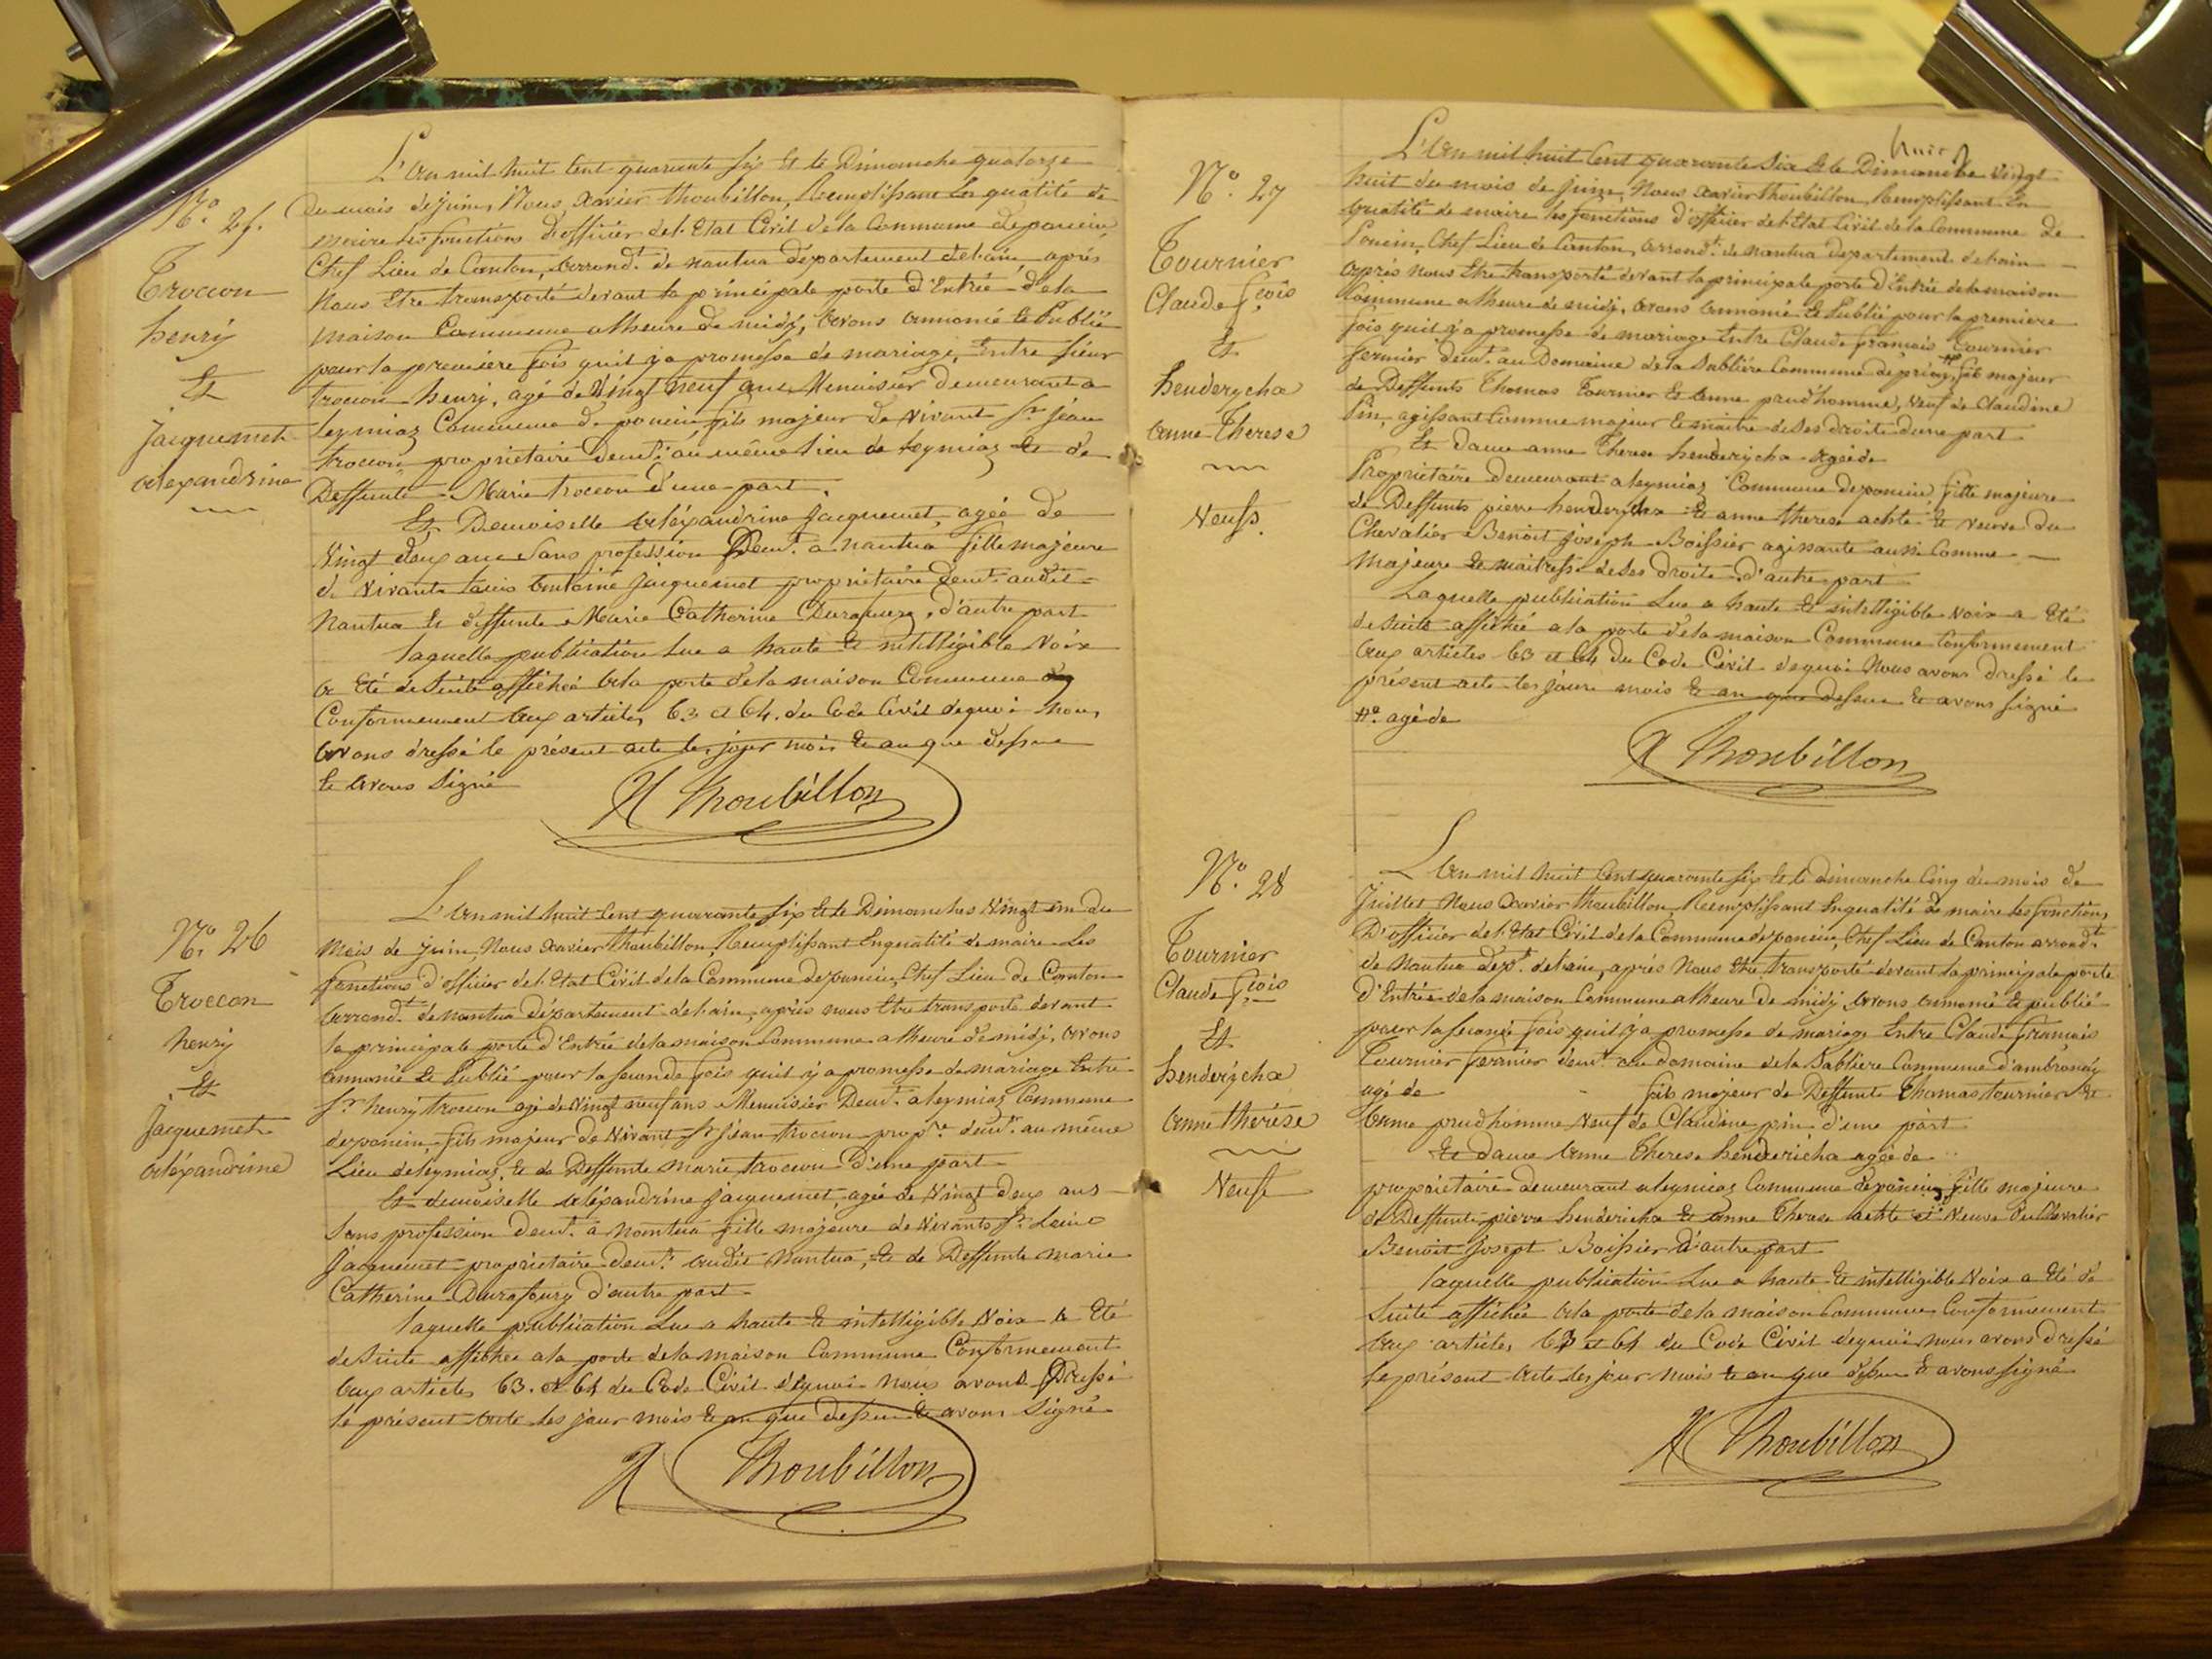 N.o 25.
Trocon
henry
Et
Jacquemet
alexandrine
L'an mil huit Cent quarante six Et le Dimanche quatorze
Du mois de juin, Nous xavier thoubillon, Remplissant En qualité de
maire Les fonctions D'officier de l'Etat Civil de la Commune de poncin,
Chef Lieu de Canton, arrond.t de nantua département de l'ain, après
Nous Etre transporté devant la principale porte d'Entrée de la
maison Commune a l'heure de midy, avons annoncé Et Publié
pour la premiere fois qu'il y a promesse de mariage, Entre sieur
trocon henry, agé de Vingt neuf ans Menuisier demeurant a
leymiaz Commune de poncin fils majeur de vivant Sr jean
trocon propriétaire demt au même lieu de leymiaz Et de
Deffunte Marie trocon d'une part.
Et Demoiselle aléxandrine Jacquemet, agée de
Vingt deux ans Sans profession Demt a nantua fille majeure
de vivant Louis antoine jacquemet propriétaire demt audit
Nantua Et deffunte Marie Catherine Durafourg, d'autre part
laquelle publication lue a haute Et intelligible Voix
a Eté de suite affichée a la porte de la maison Commune
Conformement aux articles 63 et 64. du Code Civil de quoi Nous
avons dressé le présent acte les jour mois Et an que dessus
Et avons signé
X Thoubillon
N.o 26
Troccon
henry
Et
Jacquemet
aléxandrine
L'an mil huit Cent quarante six Et le Dimanches Vingt un du
mois de juin, Nous xavier thoubillon, Remplissant En qualité de maire Les
fonctions d'officier de l'Etat Civil de la Commune de poncin, Chef Lieu de Canton
arrond.t de nantua département de l'ain, après nous Etre transporté devant
la principale porte d'Entrée de la maison Commune a l'heure de midi, avons
annoncé Et Publié pour la seconde fois qu'il y a promesse de mariage Entre
Sr henry trocon agé de Vingt neuf ans Menuisier Demt a leymiaz Commune
de poncin, fils majeur de Vivant Sr jean trocon propre demt au même
Lieu de leymiaz, Et de Deffunte marie trocon D'une part
Et demoiselle aléxandrine jacquemet, agée de Vingt deux ans
Sans profession demt a nantua fille majeure de Vivants Sr Louis
Jacquemet propriétaire demt audit Nantua, Et de Deffunte marie
Catherine Durafourg d'autre part
laquelle publication Lue a haute Et intelligible Voix a Eté
de suite affichée a la porte de la maison Commune Conformement
aux articles 63. et 64 du Code Civil de quoi nous avons Dressé
le présent acte les jour mois Et an que dessus Et avons signé
X Thoubillon
N.o 27
Tournier
Claude fçois
Et
henderycha
anne Therese
Veufs.
huit
L'an mil huit Cent quarante six Et le Dimanche Vingt
huit du mois de juin, Nous xavier thoubillon, Remplissant En
qualité de maire les fonctions d'officier de l'Etat Civil de la Commune de
Poncin, Chef Lieu de Canton, arrond.t de nantua département de l'ain
après nous Etre transporté devant la principale porte d'Entrée de la maison
Commune a l'heure de midy, avons annoncé Et Publié pour la premiere
fois qu'il y a promesse de mariage Entre Claude françois Tournier
fermier demt au Domaine de la Sablière Commune de priay, # fils majeur
de Deffunts Thomas Tournier Et anne prud'homme, Veuf de Claudine
Pin, agissant Comme majeur Et maitre de ses droits d'une part
Et dame anne Therese henderycha Agée de
Propriétaire demeurant a leymiaz Commune de poncin, fille majeure
de Deffunts pierre henderycha Et anne therese achte Et veuve du
Chevalier Benoit joseph Boissier agissante aussi Comme
majeure Et maitresse de ses droits d'autre part
Laquelle publication Lue a haute Et intelligible Voix a Eté
de suite affichée a la porte de la maison Commune Conformement
aux articles 63 et 64 du Code Civil de quoi Nous avons dressé le
présent acte les jours mois Et an que dessus Et avons signé
#. agé de
X Thoubillon
N.o 28
Tournier
Claude fçois
Et
henderycha
anne thérèse
Veufs
L'an mil huit Cent quarante six Et le dimanche Cinq du mois de
Juillet Nous xavier thoubillon, Remplissant En qualité de maire les fonctions
D'officier de l'Etat Civil de la Commune de poncin, Chef Lieu de Canton arrond.t
de Nantua Dept de l'ain, après Nous Etre transporté devant la principale porte
d'Entrée de la maison Commune a l'heure de midy avons annoncé Et publié
pour la seconde fois qu'il y a promesse de mariage Entre Claude françois
Tournier fermier demt au domaine de la Sabliere Commune d'ambronay
agé de fils majeur de Deffunts Thomas tournier Et
anne prudhomme Veuf de Claudine pin d'une part
Et dame anne Therese hendericha agée de
propriétaire demeurant a leymiaz Commune de poncin, fille majeure
de Deffunts pierre hendericha Et anne Therese achte et Veuve Du Chevalier
Benoit josept Boissier D'autre part
laquelle publication Lue a haute Et intelligible Voix a Eté de
suite affichée a la porte de la maison Commune Conformement
aux articles 63 et 64 du Code Civil de quoi nous avons dressé
le présent acte les jour mois Et an que dessus Et avons signé
X Thoubillon